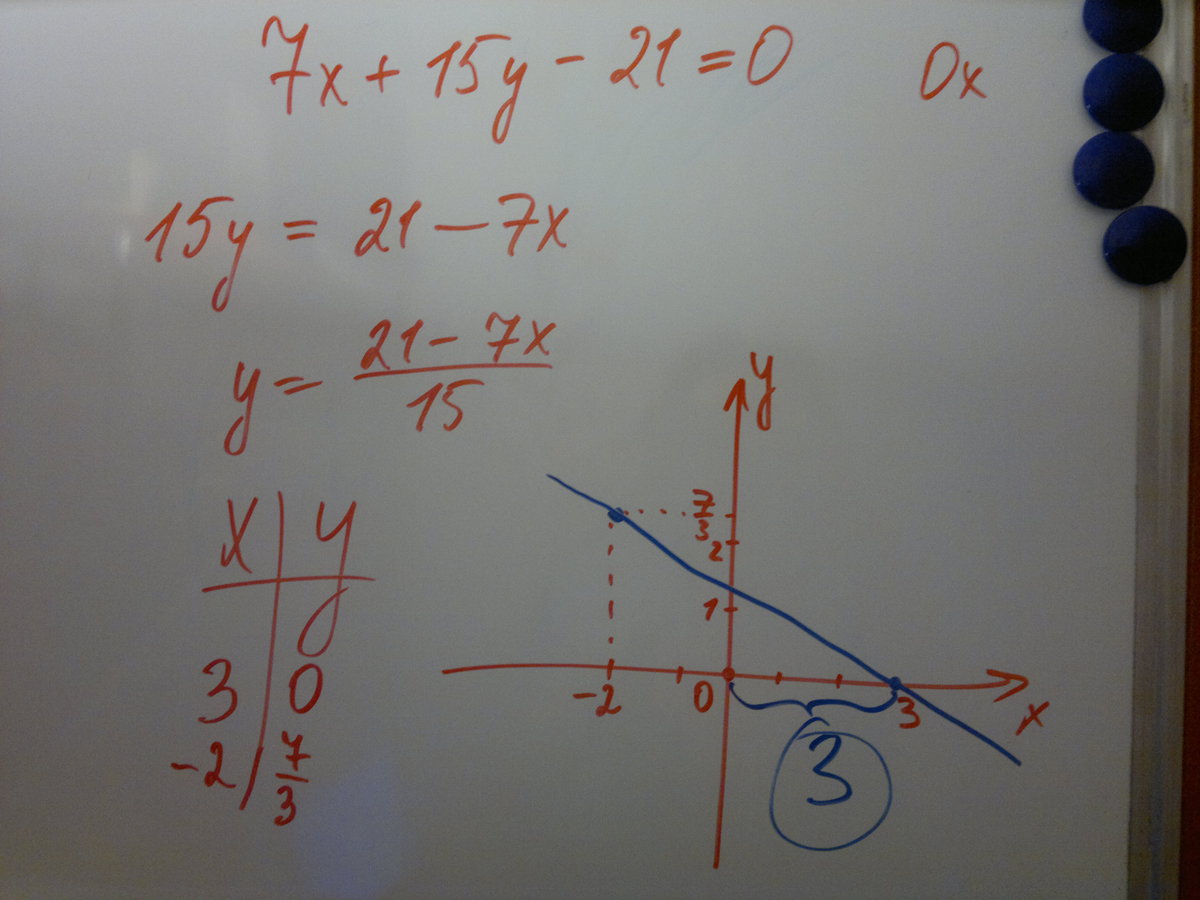 7x + 15y - 21 = 0 0x
15y = 21 - 7x
y = (21 - 7x)/15
x y
3 0
-2 7/3
y
7/3
2
1
-2 0 3 x
3